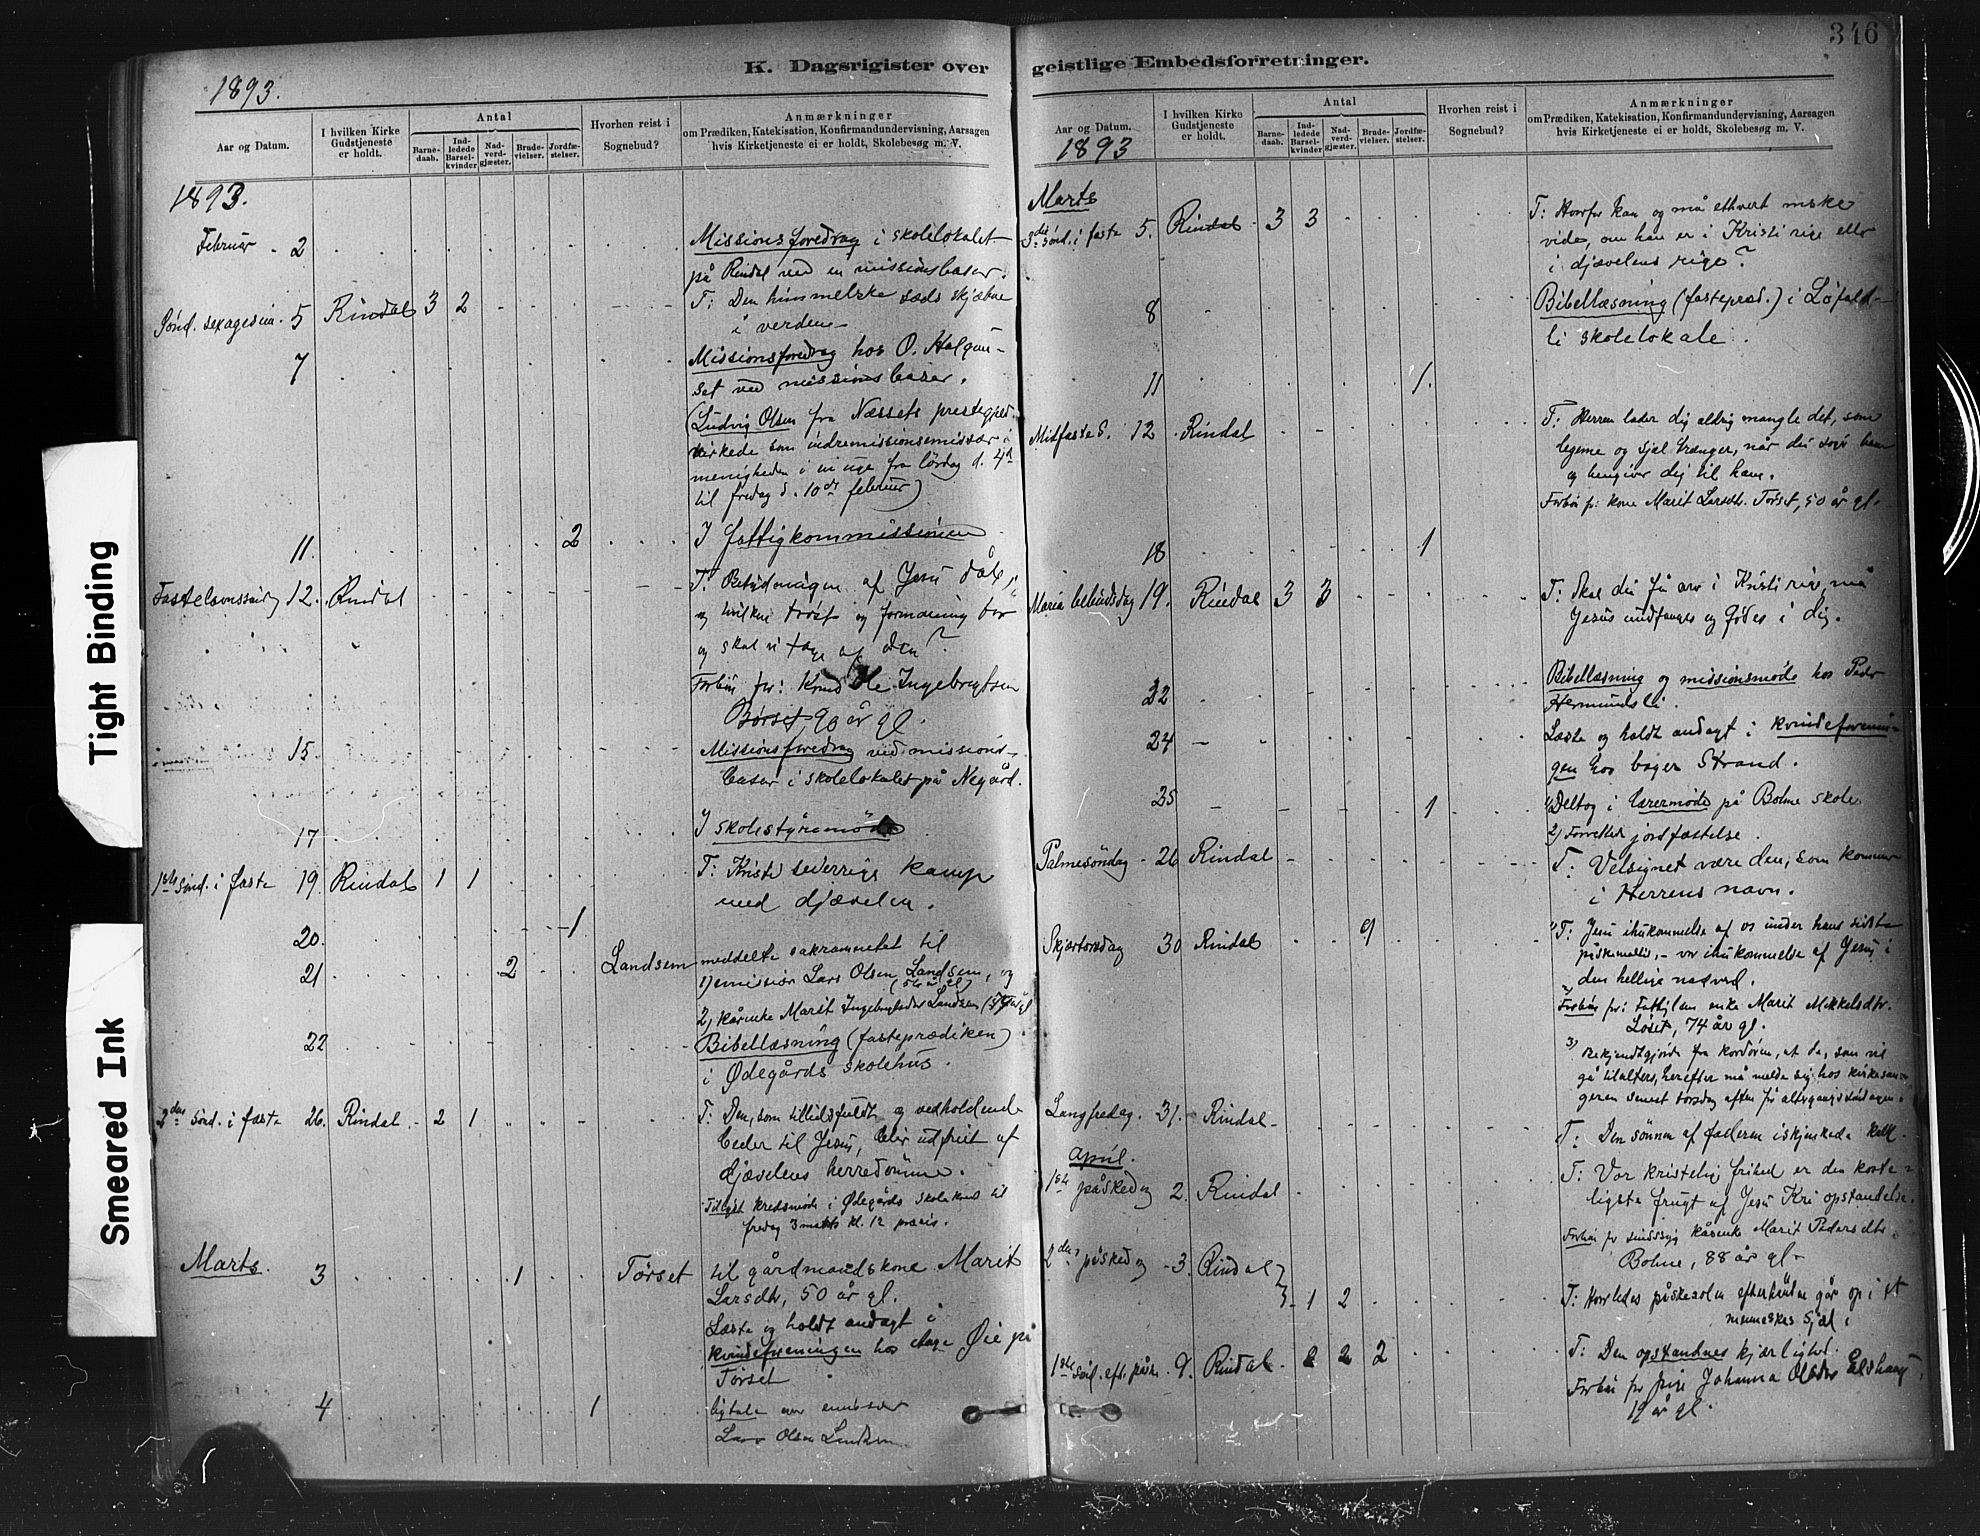 346
K. Dagsrigister over geistlige Embedsforretninger.
1893.
Aar og Datum.
I hvilken Kirke Gudstjeneste er holdt.
Antal
Barnedaab.
Indledede Barselkvinder
Nadverdgjæster.
Brudevielser.
Jordfæstelser.
Hvorhen reist i Sognebud?
Anmærkninger
om Prædiken, Katekisation, Konfirmandundervisning, Aarsagen
hvis Kirketjeneste ei er holdt, Skolebesøg m. V.
1893.
Februar 2
Missionsforedrag i skolelokalet
på Rindal ved en missionsbasar.
Sønd. sexagesima 5 Rindal 3 2
T: Den himmelske sæds skjæbne
i verden
7
Missionsforedrag hos O. Halgun-
set ved missionsbasar.
(Ludvig Olsen fra Næssets prestegjeld
virkede som indremissionsemissær i
menigheden i en uge fra lørdag d. 4de
til fredag d. 10de februar)
11. 2 I fattigkommissionen
Fastelavnssøndag 12. Rindal
T: Betydningen af Jesu dåb,
og hvilken trøst og formaning bør
og skal vi tage af den?
Forbøn for: Ole Ingebrigtsen
Børset 90 år gl.
15
Missionsforedrag ved missions-
basar i skolelokalet på Negård.
17 I skolestyremøde
1ste sønd. i faste 19. Rindal 1 1
T: Kristi seierrige kamp
med djævelen.
20. 1
21 2 Landsem
meddelte sakramentet til
1) emissær Lars Olsen Landsem, og
2) kårenke Marit Ingebrigtsdtr Landsem
22
Bibellæsning (fasteprædiken)
i Ødegårds skolehus.
2den sønd. i faste 26. Rindal 2 1
T: Den, som tillidsfuldt og vedholdende
beder til Jesus, blir udfriet af
djævelens herredømme.
Tillyst kredsmøde i Ødegårds skolehus til
fredag 3 marts kl. 12 præcis.
Marts. 3 1 Tørset
til gårdmandskone Marit
Larsdtr, 50 år gl.
Læste og holdt andagt i
kvindeforeningen hos Aage Øie på
Tørset
4 1
ligtale over emissær
Lars Olsen Landsem
Aar og Datum.
1893
I hvilken Kirke Gudstjeneste er holdt.
Antal
Barnedaab.
Indledede Barselkvinder
Nadverdgjæster.
Brudevielser.
Jordfæstelser.
Hvorhen reist i Sognebud?
Anmærkninger
om Prædiken, Katekisation, Konfirmandundervisning, Aarsagen
hvis Kirketjeneste ei er holdt, Skolebesøg m. V.
Marts
3die sønd. i faste 5. Rindal 3 3
T: Hvorfor kan og må ethvert mske
vide, om han er i Kristi rige eller
i djævelens rige?
8
Bibellæsning (fastepræd.) i Løfald-
li skolelokale.
11 1.
Midfaste S. 12 Rindal
T: Herren lader dig aldrig mangle det, som
legeme og sjæl trænger, når du søger ham
og hengiver dig til ham.
Forbøn for kone Marit Larsdtr. Tørset, 50 år gl.
18 1
Maria bebudelsdag 19. Rindal 3 3
T: Skal du få arv i Kristi rige, må
Jesus undfanges og fødes i dig.
22
Bibellæsning og missionsmøde hos Peder
Hermundsli.
24
Læste og holdt andagt i kvindeforenin-
gen hos bager Strand.
25 1
1) Deltog i lærermøde på Bolme skole
2) Forrettede jordfæstelse.
Palmesøndag 26 Rindal
T: Velsignet være den, som kommer
i Herrens navn.
Skjærtorsdag 30 Rindal 9
1) T: Jesu ihukommelse af os under hans sidste
påskemåltid, - vor ihukommelse af Jesus i
den hellige nadverd.
2) Forbøn for: Fattiglem enke Marit Mikkelsdtr.
Løset, 74 år gl.
3) Bekjendtgjorde fra kordøren, at de, som vil
gå tilalters, herefter må melde sig hos kirkesan-
geren senest torsdag aften før altergangssøndagen.
Langfredag. 31. Rindal
T: Den sønnen af faderen iskjenkede kalk.
April.
1ste påskedag 2. Rindal
T: Vor kristelig frihed er den koste-
ligste frugt af Jesu Kri opstandelse.
Forbøn for sindssyg kårenke Marit Pedersdtr
Bolme, 88 år gl.
2den påskedag 3. Rindal 3 1 2
T: Hvorledes påskesolen efterhånden går op i et
menneskes sjæl
1ste sønd. eft. påske 9. Rindal 2 2 2
T: Den opstandnes kjærlighed.
Forbøn for pige Johanna Olsdtr
12 år gl.
Tight Binding
Smeared Ink